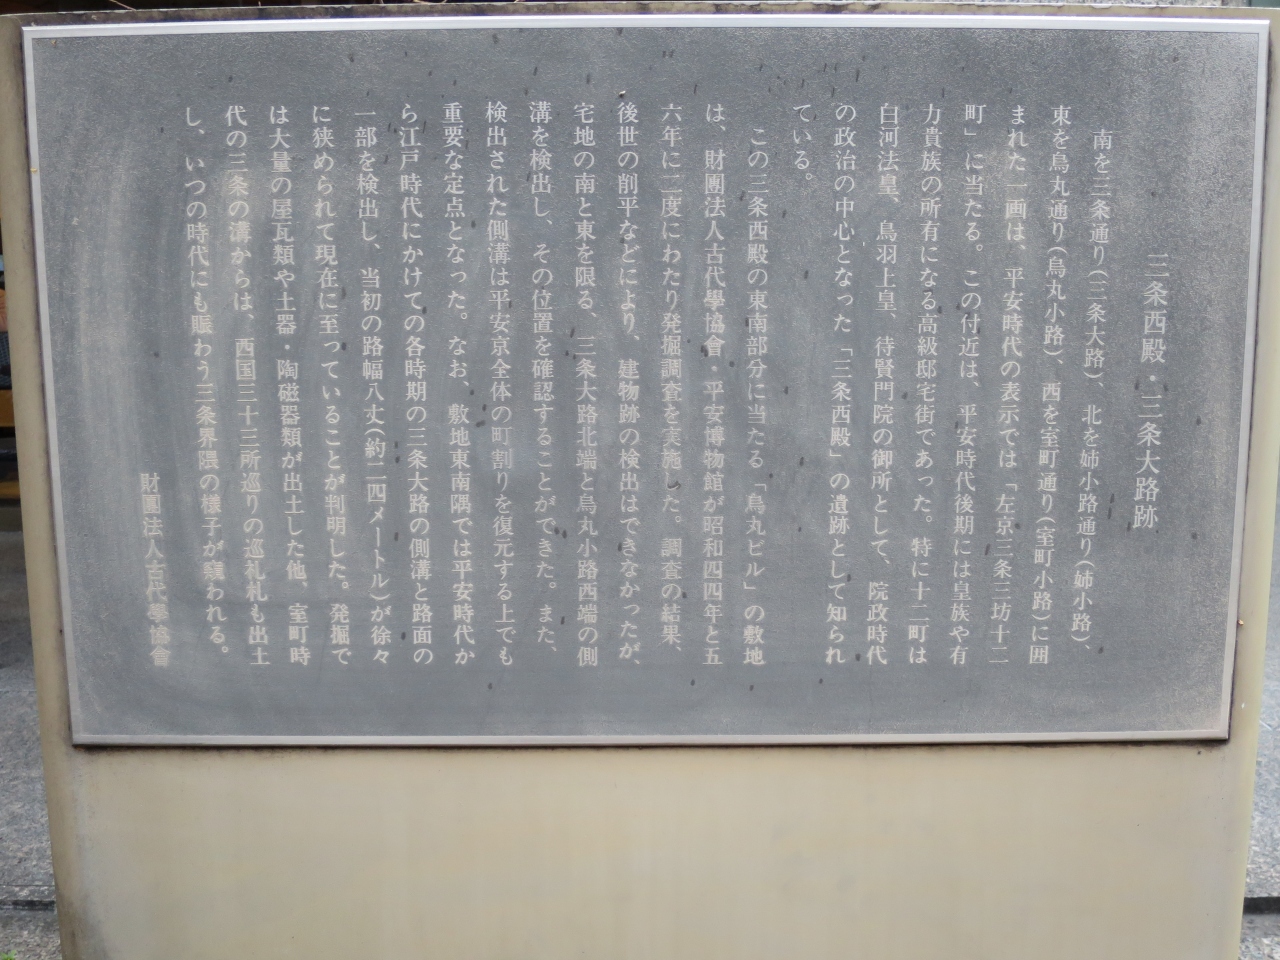 三条西殿・三条大路跡
南を三条通り(三条大路)、北を姉小路通り(姉小路)、
東を烏丸通り(烏丸小路)、西を室町通り(室町小路)に囲
まれた一画は、平安時代の表示では「左京三条三坊十二
町」に当たる。この付近は、平安時代後期には皇族や有
力貴族の所有になる高級邸宅街であった。特に十二町は
白河法皇、鳥羽上皇、待賢門院の御所として、院政時代
の政治の中心となった「三条西殿」の遺跡として知られ
ている。
この三条西殿の東南部分に当たる「烏丸ビル」の敷地
は、財團法人古代學協會・平安博物館が昭和四四年と五
六年に二度にわたり発掘調査を実施した。調査の結果、
後世の削平などにより、建物跡の検出はできなかったが、
宅地の南と東を限る、三条大路北端と烏丸小路西端の側
溝を検出し、その位置を確認することができた。また、
検出された側溝は平安京全体の町割りを復元する上でも
重要な定点となった。なお、敷地東南隅では平安時代か
ら江戸時代にかけての各時期の三条大路の側溝と路面の
一部を検出し、当初の路幅八丈(約二四メートル)が徐々
に狭められて現在に至っていることが判明した。発掘で
は大量の屋瓦類や土器・陶磁器類が出土した他、室町時
代の三条の溝からは、西国三十三所巡りの巡礼札も出土
し、いつの時代にも賑わう三条界隈の様子が窺われる。
財團法人古代學協會